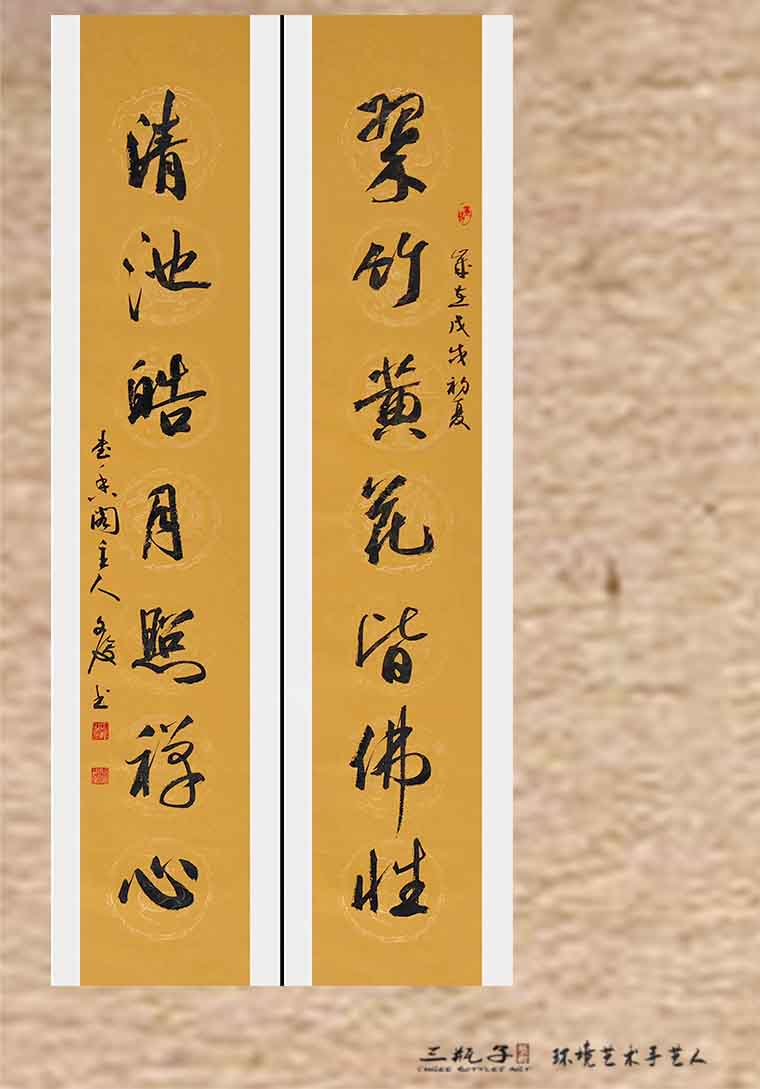 翠竹黄花皆佛性
岁在戊戌初夏
清池皓月照禅心
書香阁主人
三瓶子
THREE BOTTLES ART
环境艺术手艺人